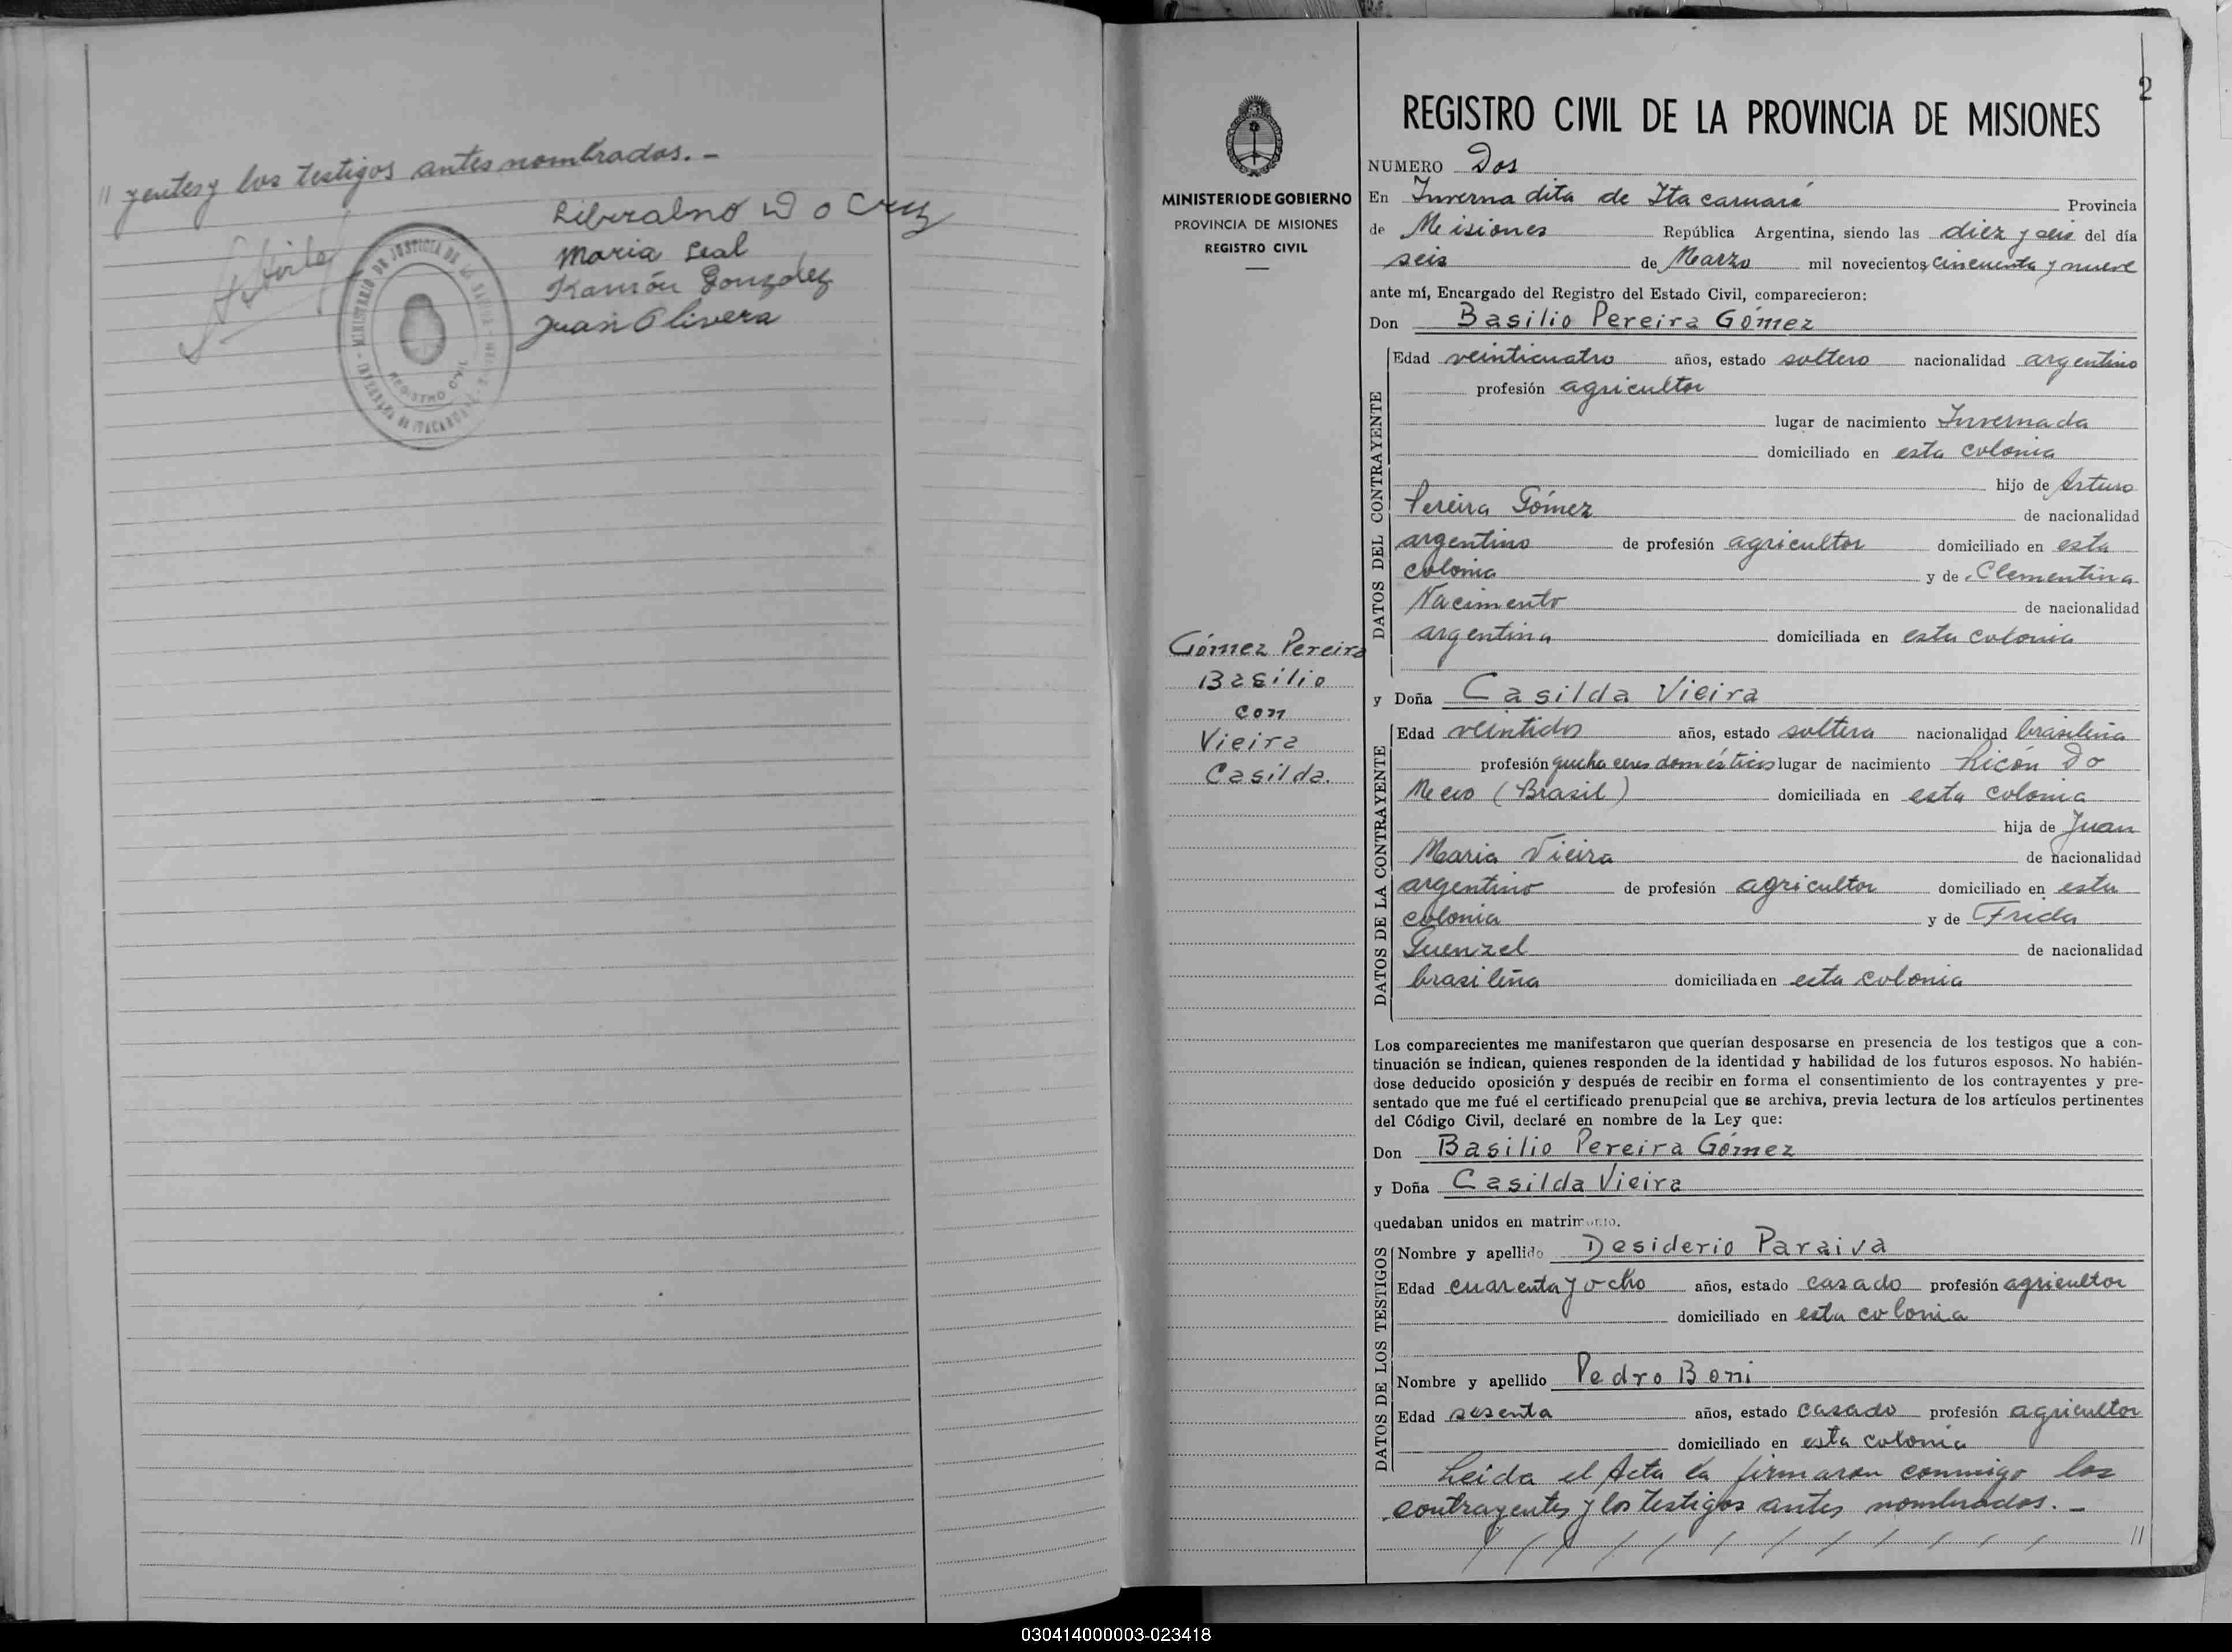 // yentes y los testigos antes nombrados. -
Liberalno Do Cruz
Maria Leal
Ramón Gonzalez
Juan Olivera
MINISTERIO DE JUSTICIA DE LA NACION
REGISTRO CIVIL
2
MINISTERIO DE GOBIERNO
PROVINCIA DE MISIONES
REGISTRO CIVIL
Gómez Pereira
Basilio
con
Vieira
Casilda.
REGISTRO CIVIL DE LA PROVINCIA DE MISIONES
NUMERO Dos
En Invernadita de Itacaruaré Provincia
de Misiones República Argentina, siendo las diez y seis del día
seis de Marzo mil novecientos cincuenta y nueve
ante mí, Encargado del Registro del Estado Civil, comparecieron:
Don Basilio Pereira Gómez
DATOS DEL CONTRAYENTE
Edad veinticuatro años, estado soltero nacionalidad argentino
profesión agricultor
lugar de nacimiento Invernada
domiciliado en esta colonia
hijo de Arturo
Pereira Gómez de nacionalidad
argentino de profesión agricultor domiciliado en esta
colonia y de Clementina
Nacimento de nacionalidad
argentina domiciliada en esta colonia
y Doña Casilda Vieira
DATOS DE LA CONTRAYENTE
Edad veintidos años, estado soltera nacionalidad brasileña
profesión quehaceres domésticos lugar de nacimiento Licón Do
Meio (Brasil) domiciliada en esta colonia
hija de Juan
Maria Vieira de nacionalidad
argentino de profesión agricultor domiciliado en esta
colonia y de Frida
Guenzel de nacionalidad
brasileña domiciliada en esta colonia
Los comparecientes me manifestaron que querían desposarse en presencia de los testigos que a con-
tinuación se indican, quienes responden de la identidad y habilidad de los futuros esposos. No habién-
dose deducido oposición y después de recibir en forma el consentimiento de los contrayentes y pre-
sentado que me fué el certificado prenupcial que se archiva, previa lectura de los artículos pertinentes
del Código Civil, declaré en nombre de la Ley que:
Don Basilio Pereira Gómez
y Doña Casilda Vieira
quedaban unidos en matrimonio.
DATOS DE LOS TESTIGOS
Nombre y apellido Desiderio Paraiva
Edad cuarenta y ocho años, estado casado profesión agricultor
domiciliado en esta colonia
Nombre y apellido Pedro Boni
Edad sesenta años, estado casado profesión agricultor
domiciliado en esta colonia
Leida el Acta la firmaron conmigo los
contrayentes y los testigos antes nombrados. -
//
030414000003-023418